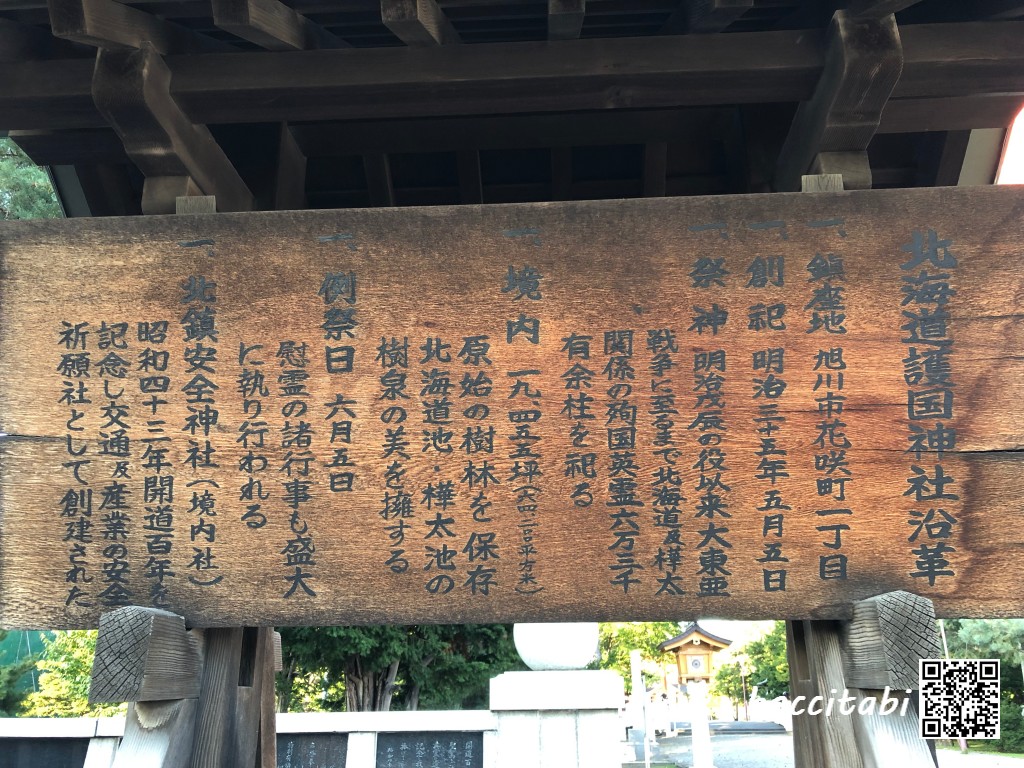 北海道護国神社沿革
一、鎮座地 旭川市花咲町一丁目
一、創祀 明治三十五年五月五日
一、祭神 明治戊辰の役以来大東亜
戦争に至るまで北海道及樺太
関係の殉国英霊六万三千
有余柱を祀る
一、境内 一九、四五五坪(六四二〇〇平方米)
原始の樹林を保存
北海道池・樺太池の
樹泉の美を擁する
一、例祭日 六月五日
慰霊の諸行事も盛大
に執り行われる
一、北鎮安全神社(境内社)
昭和四十三年開道百年を
記念し交通及産業の安全
祈願社として創建された